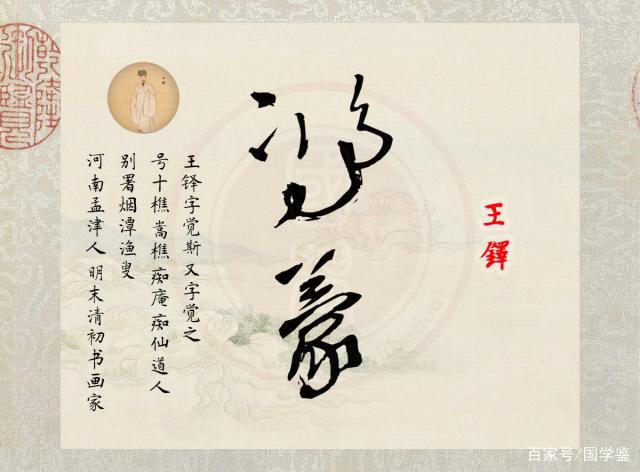 王鐸
鸿蒙
王铎字觉斯又字觉之
号十樵嵩樵痴庵痴仙道人
别署烟潭渔叟
河南孟津人 明末清初书画家
乾隆
御覽
百家号/国学鉴